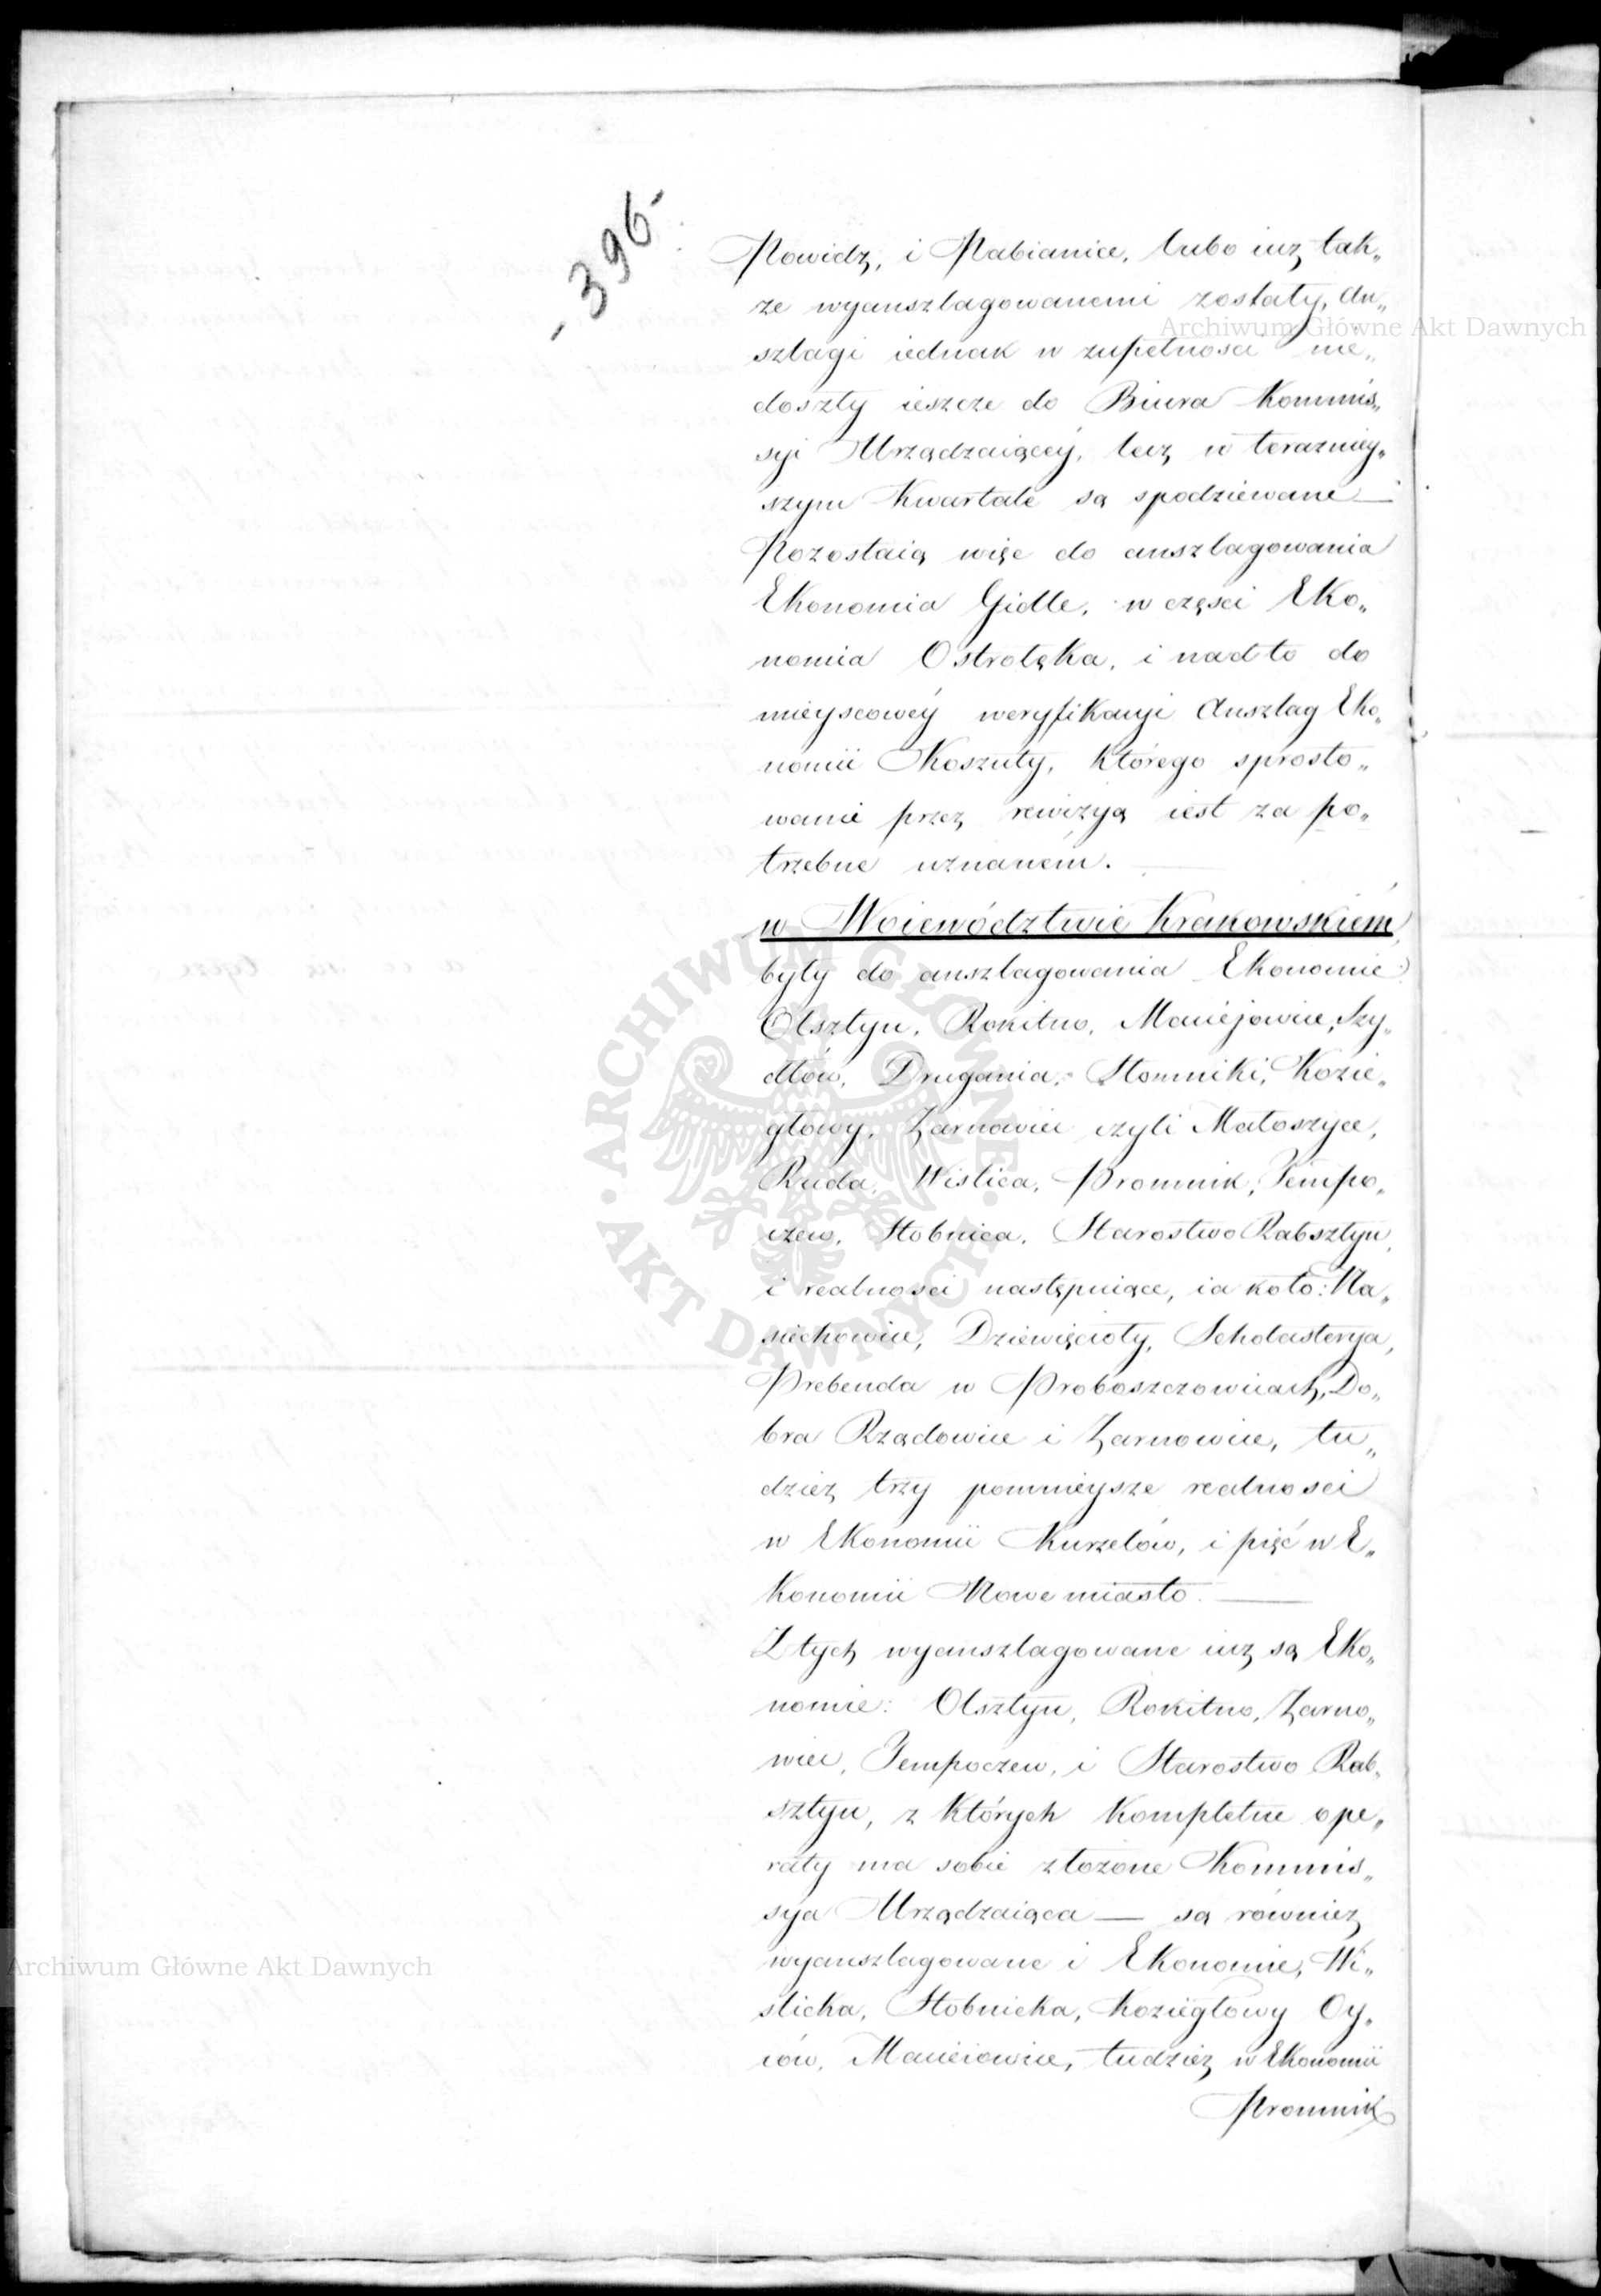 - 396 -
Powidz, i Pabianice, lubo iuz tak„
ze wyanszlagowanemi zostały, An„
szlagi iednak w zupełnosci nie„
doszły ieszcze do Biura Kommis„
syi Urządzaiącey, lecz w terazniey„
szym Kwartale są spodziewane —
Pozostaią więc do anszlagowania
Ekonomia Gidle, w częsci Eko„
nomia Ostrołęka, i nadto do
mieyscowey weryfikacyi Anszlag Eko„
nomii Koszuty, którego sprosto„
wanie przez rewizyą iest za po„
trzebne uznanem. —
w Woiewództwie Krakowskiem,
były do anszlagowania Ekonomie:
Olsztyn, Rokitno, Maciejowice, Szy„
dłów, Drugania, Słomniki, Kozie„
głowy, Zarnowiec czyli Małoszyce,
Ruda, Wislica, Promnik, Tempo„
czew, Stobnica, Starostwo Rabsztyn,
i realnosci następuiące, ia koto: Na„
siechowice, Dziewięcioły, Scholasterya,
Prebenda w Proboszczowicach, Do„
bra Rządowice i Zarnowice, tu„
dziez trzy pomnieysze realnosci
w Ekonomii Kurzelów, i pięć w E„
konomii Nowe miasto. —
Z tych wyanszlagowane iuz są Eko„
nomie: Olsztyn, Rokitno, Zarno„
wiec, Tempoczew, i Starostwo Rab„
sztyn, z których kompletne ope„
raty ma sobie złozone Kommis„
sya Urządzaiąca — są równiez
wyanszlagowane i Ekonomie, Wi„
slicka, Stobnicka, Koziegłowy Oy„
ców, Macieiowice, tudziez w Ekonomii
Promnik
Archiwum Główne Akt Dawnych
Archiwum Główne Akt Dawnych
ARCHIWUM GŁÓWNE · AKT DAWNYCH ·